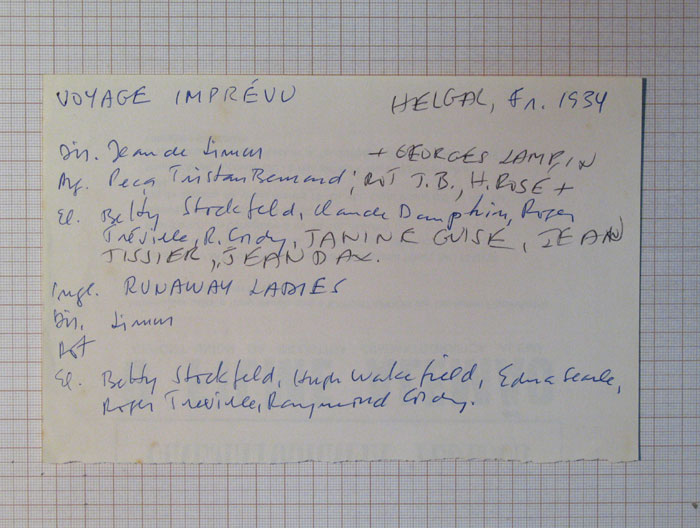 VOYAGE IMPRÉVU HELGAL, Fr. 1934
Dir. Jean de Limur + GEORGES LAMPIN
Arg. Peça Tristan Bernard; ROT T.B., H. ROSÉ +
El. Betty Stockfeld, Claude Dauphin, Roger
Tréville, R. Cordy, JANINE GUISE, JEAN
TISSIER, JEAN DAX.
Ingl. RUNAWAY LADIES
Dir. Limur
Rot
El. Betty Stockfeld, Hugh Wakefield, Edna Searle,
Roger Tréville, Raymond Cordy.